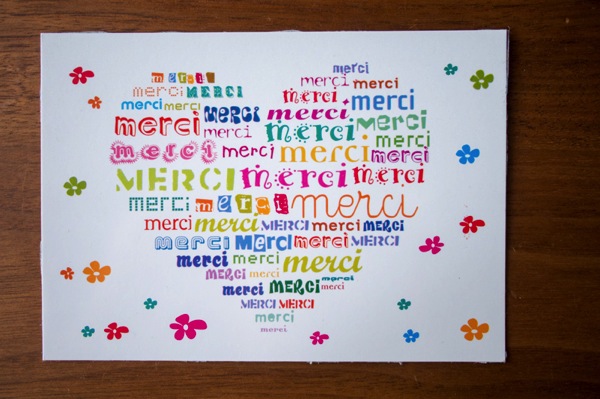 merci
merci merci merci
merci MERCI merci merci
merci merci merci merci
merci MERCI merci merci
merci merci merci merci
merci merci merci merci
MERCI merci merci
merci merci merci
merci merci MERCI merci merci
merci Merci merci MERCI
merci merci merci
MERCI merci merci
merci MERCI merci
MERCI MERCI
merci
merci